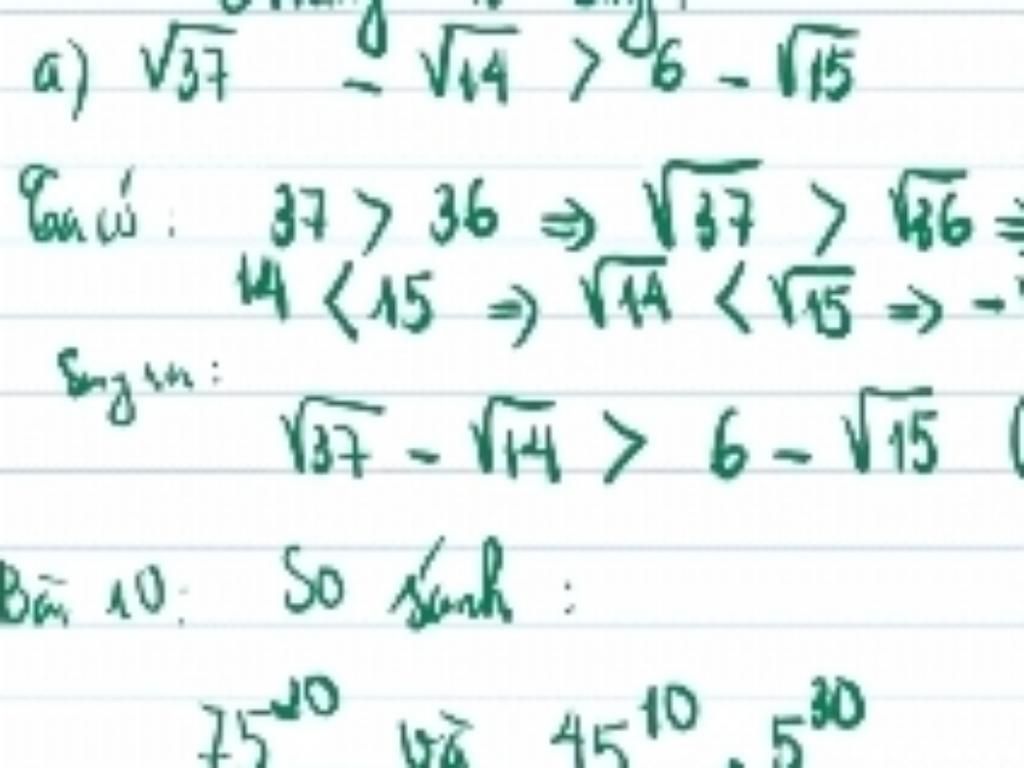 a) √37 - √14 > 6 - √15
Ta có : 37 > 36 ⇒ √37 > √36 ⇒
14 < 15 ⇒ √14 < √15 ⇒ -
Suy ra :
√37 - √14 > 6 - √15 (
Bài 10: So sánh :
75²⁰ và 45¹⁰ . 5³⁰